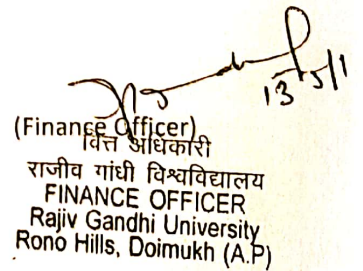 (Finance Officer)
वित्त अधिकारी
राजीव गांधी विश्वविद्यालय
FINANCE OFFICER
Rajiv Gandhi University
Rono Hills, Doimukh (A.P)